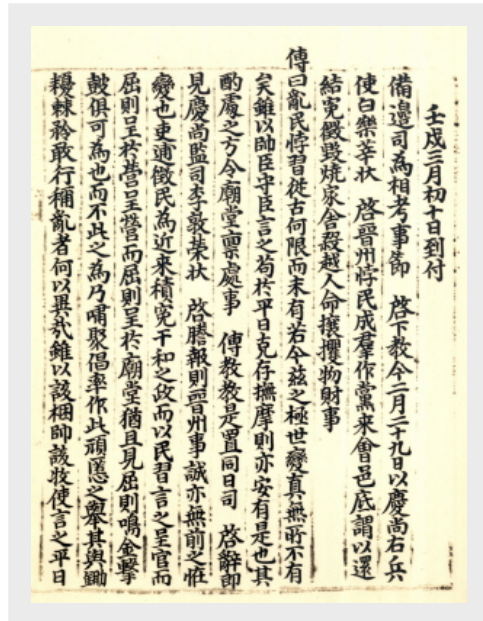 壬戌三月初十日到付
備邊司為相考事節 啓下教今二月二十九日以慶尚右兵
使白樂莘狀 啓晉州悖民成羣作黨來會邑底謂以還
結寃徵毀燒家舍殺越人命攘攫物財事
傳曰亂民悖習從古何限而未有若今玆之極世變眞無所不有
矣雖以帥臣守臣言之苟於平日克存撫摩則亦安有是也其
酌處之方令廟堂稟處事 傳敎敎是置同日司 啓辭卽
見慶尚監司李敦榮狀 啓謄報則晉州事誠亦無前之恠
變也吏逋徵民為近來積寃干和之政而以民習言之呈官而
屈則呈於營呈營而屈則呈於廟堂猶且見屈則鳴金擊
皷俱可為也而不此之為乃嘯聚倡率作此頑慝之擧其與鋤
耰棘矜敢行稱亂者何以異哉雖以該梱帥該牧使言之平日